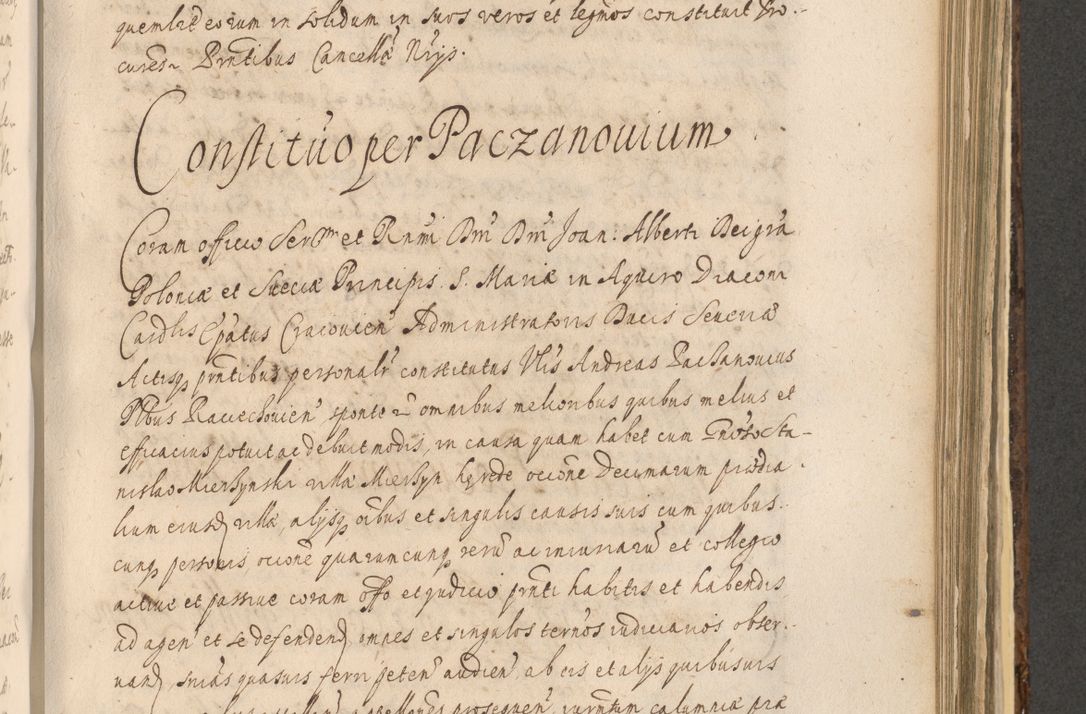 quemlibet eorum in solidum in suos veros et legnos constituit Pro-
cures. Pnntibus Cancellae Nrijs.
Constituo per Paczanouium
Coram officio Sermi et Rnmi Dni Dni Joan: Alberti Dei gra
Poloniae et Sueciae Principis S. Mariae in Aquiro Diaconi
Cardlis Epatus Cracouien Administratoris Ducis Seueriae
Actisq pntibus personalr constitutus Vlis Andreas Paczanouius
Plbus Raciechouien sponte et omnibus melioribus quibus melius et
efficacius potuit ac debuit modis, in causa quam habet cum Gnoso Sta-
nislao Mierzynski villae Mierzyn haerede occone Decimarum praedia-
lium eiusd villae, alijsq oibus et singulis causis suis cum quibus-
cunq personis occone quarumcunq reru ac iniuriaru et collegio
actiue et passiue coram offo et judicio pnti habitis et habendis
ad agen et se defendend, omnes et singulos ternos iudiciarios obser-
uand, snias quasuis ferri peten audien, ab eis et alijs quibusuis
appellones prosequen, iurmtum calumniae prae